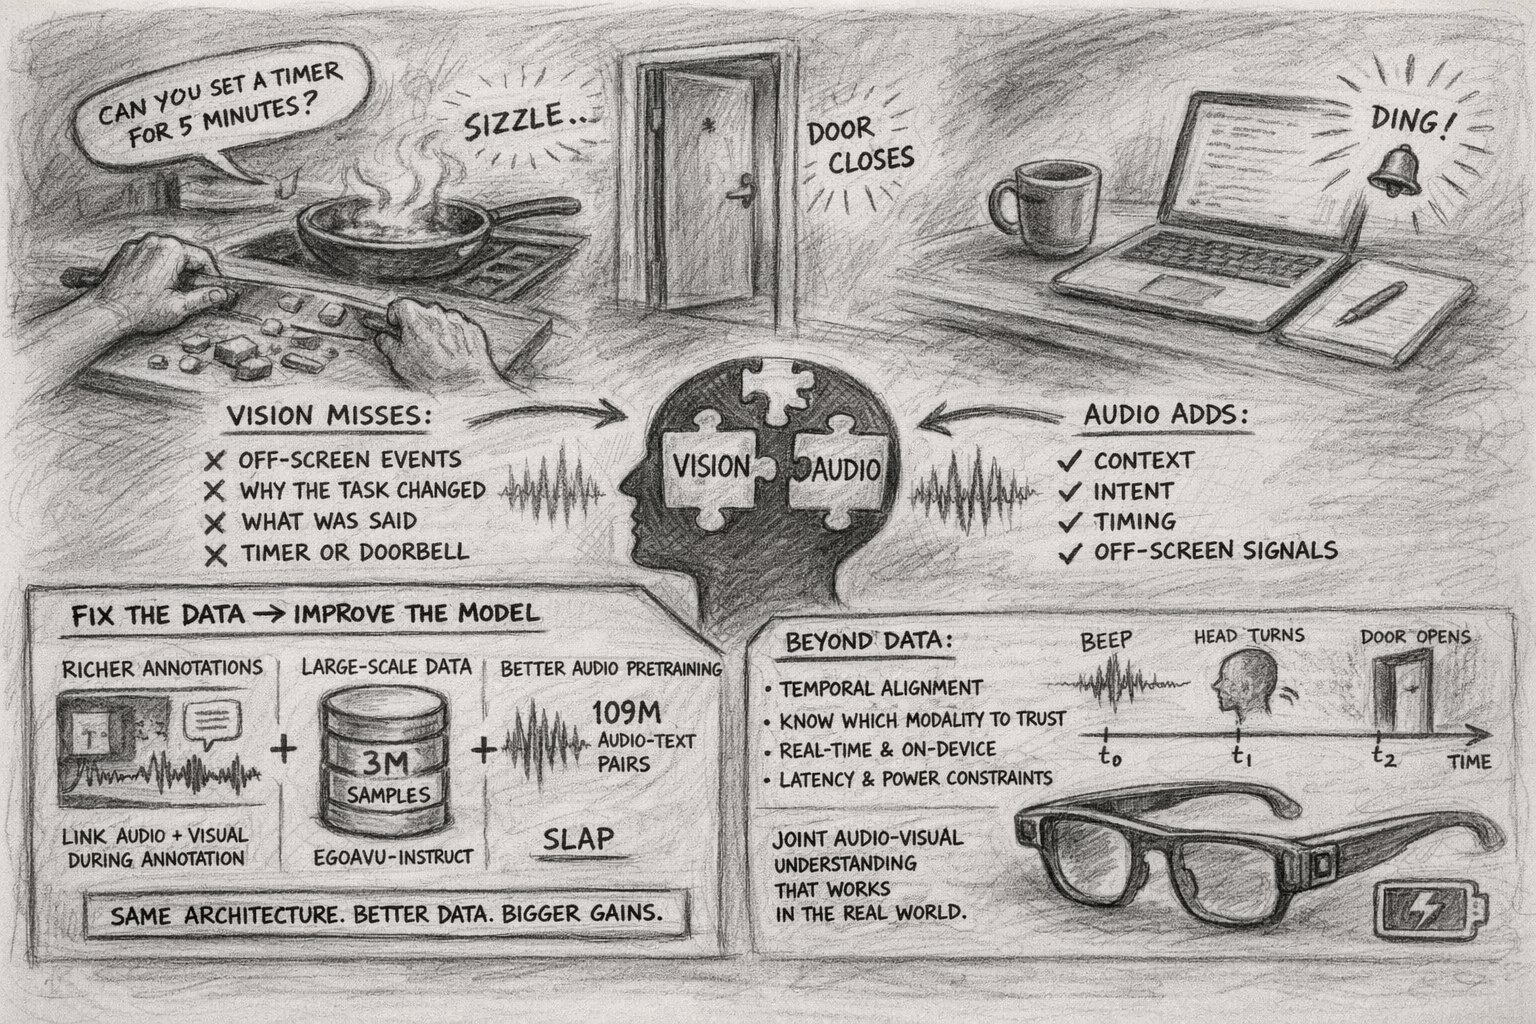 CAN YOU SET A TIMER
FOR 5 MINUTES?
SIZZLE...
DOOR
CLOSES
DING!
VISION MISSES:
OFF-SCREEN EVENTS
WHY THE TASK CHANGED
WHAT WAS SAID
TIMER OR DOORBELL
VISION
AUDIO
AUDIO ADDS:
CONTEXT
INTENT
TIMING
OFF-SCREEN SIGNALS
FIX THE DATA → IMPROVE THE MODEL
RICHER ANNOTATIONS
LINK AUDIO + VISUAL
DURING ANNOTATION
+
LARGE-SCALE DATA
3M
SAMPLES
EGOAVU-INSTRUCT
+
BETTER AUDIO PRETRAINING
109M
AUDIO-TEXT
PAIRS
SLAP
SAME ARCHITECTURE. BETTER DATA. BIGGER GAINS.
BEYOND DATA:
• TEMPORAL ALIGNMENT
• KNOW WHICH MODALITY TO TRUST
• REAL-TIME & ON-DEVICE
• LATENCY & POWER CONSTRAINTS
BEEP
HEAD TURNS
DOOR OPENS
t0
t1
t2
TIME
JOINT AUDIO-VISUAL
UNDERSTANDING
THAT WORKS
IN THE REAL WORLD.